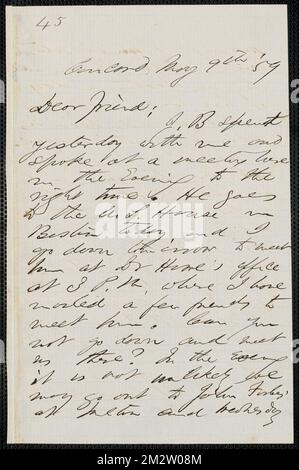 45
Concord May 9th '59
Dear friend;
J. B spent
yesterday with me and
spoke at a meeting here
in the Evening to the
right tune. He goes
to the U.S. House in
Boston today and I
go down tomorrow to meet
him at Dr Howe's office
at 3 P.M. where I have
invited a few friends to
meet him. Can you
not go down and meet
us there? In the Evening
it is not unlikely we
may go out to John Forbes'
at Milton and Wednesday
alamy
Image ID: 2M2W08M
www.alamy.com